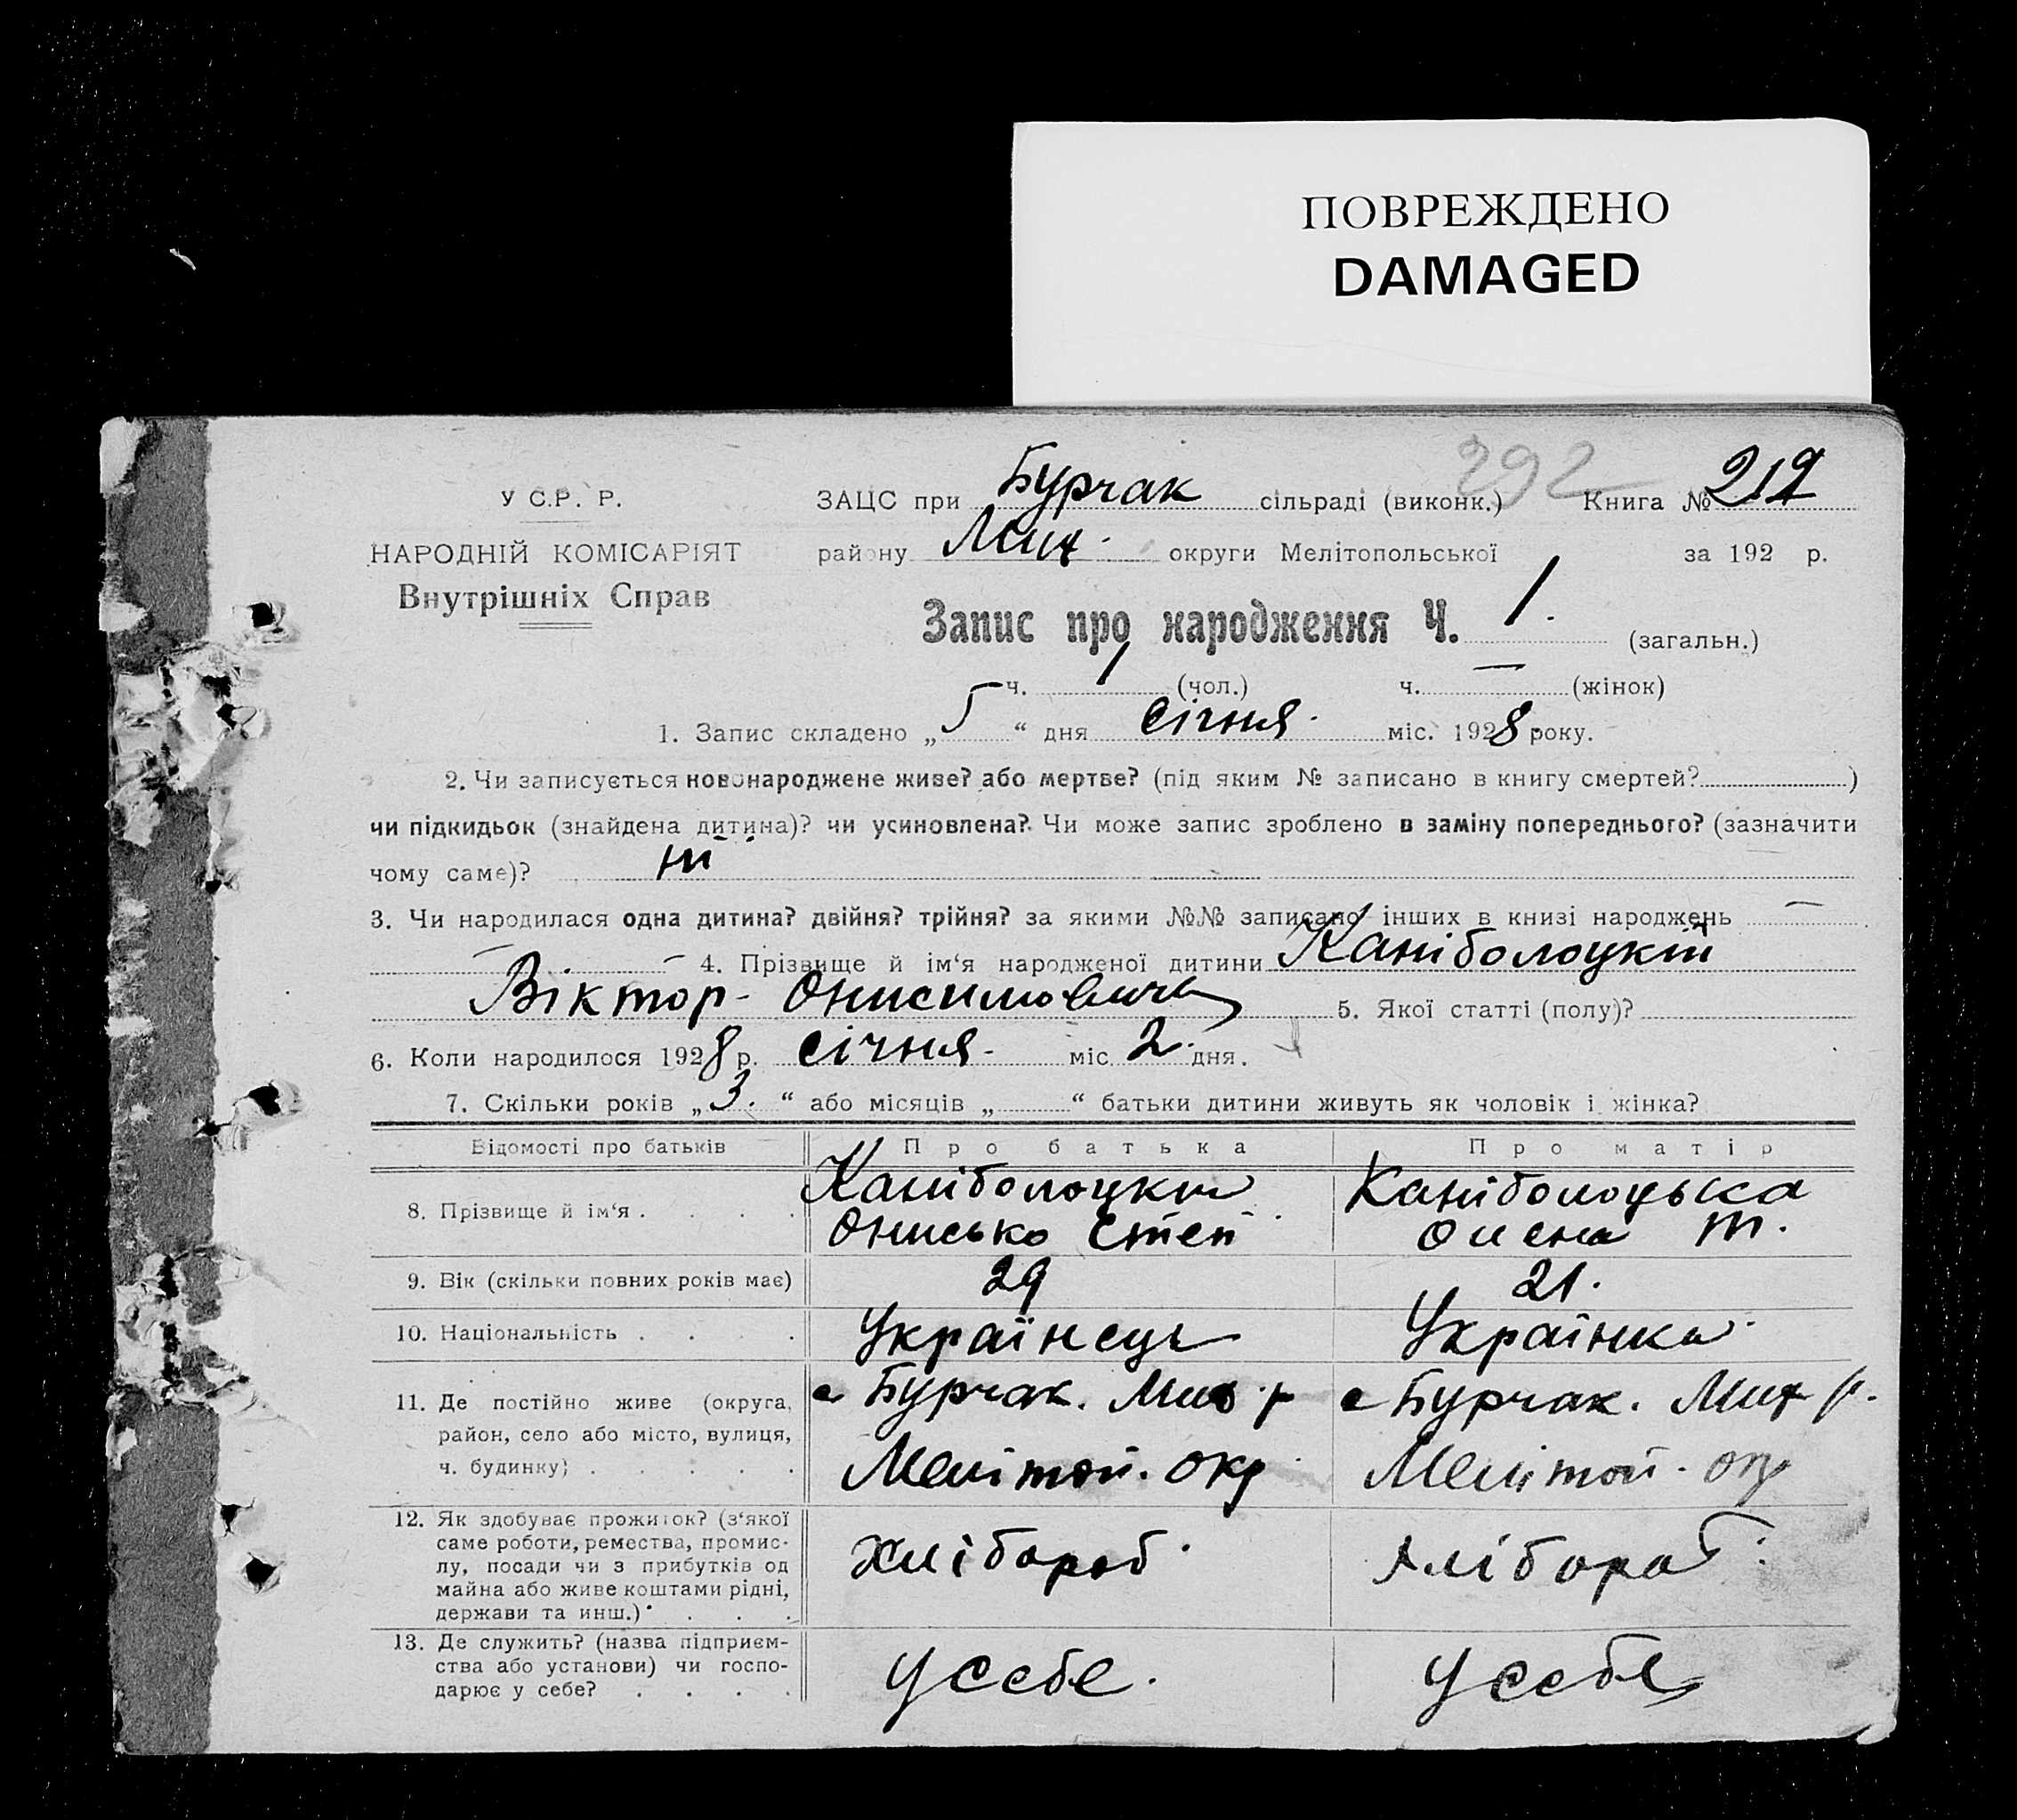 ПОВРЕЖДЕНО
DAMAGED
292
У С.Р. Р. ЗАЦС при Бурчак сільраді (виконк.) Книга № 219
НАРОДНІЙ КОМІСАРІЯТ району Мих. округи Мелітопольської за 192 р.
Внутрішніх Справ
Запис про народження Ч. 1. (загальн.)
ч. 1 (чол.) ч. — (жінок)
1. Запис складено „ 5 “ дня січня. міс. 1928 року.
2. Чи записується новонароджене живе? або мертве? (під яким № записано в книгу смертей? )
чи підкидьок (знайдена дитина)? чи усиновлена? Чи може запис зроблено в заміну попереднього? (зазначити
чому саме)? ні
3. Чи народилася одна дитина? двійня? трійня? за якими №№ записано інших в книзі народжень —
— — 4. Прізвище й ім‘я народженої дитини Каніболоцкій
Віктор - Онисимович 5. Якої статті (полу)?
6. Коли народилося 1928 р. січня - міс. 2. дня.
7. Скільки років „ 3. “ або місяців „ “ батьки дитини живуть як чоловік і жінка?
Відомості про батьків Про батька Про матір
8. Прізвище й ім‘я . . . . Каніболоцкий Каніболоцька
Онисько Степ Олена Т.
9. Вік (скільки повних років має) 29 21.
10. Національність . . . . Українець Українка
11. Де постійно живе (округа, с Бурчак. Мих р с Бурчак. Мих р.
район, село або місто, вулиця,
ч. будинку) . . . . . Мелітоп. окр Мелітоп. окр
12. Як здобуває прожиток? (з‘якої
саме роботи, ремества, промис-
лу, посади чи з прибутків од Хлібороб. Хлібороб.
майна або живе коштами рідні,
держави та инш.) . . .
13. Де служить? (назва підприєм-
ства або установи) чи госпо- У себе. У себе
дарює у себе? . . . .